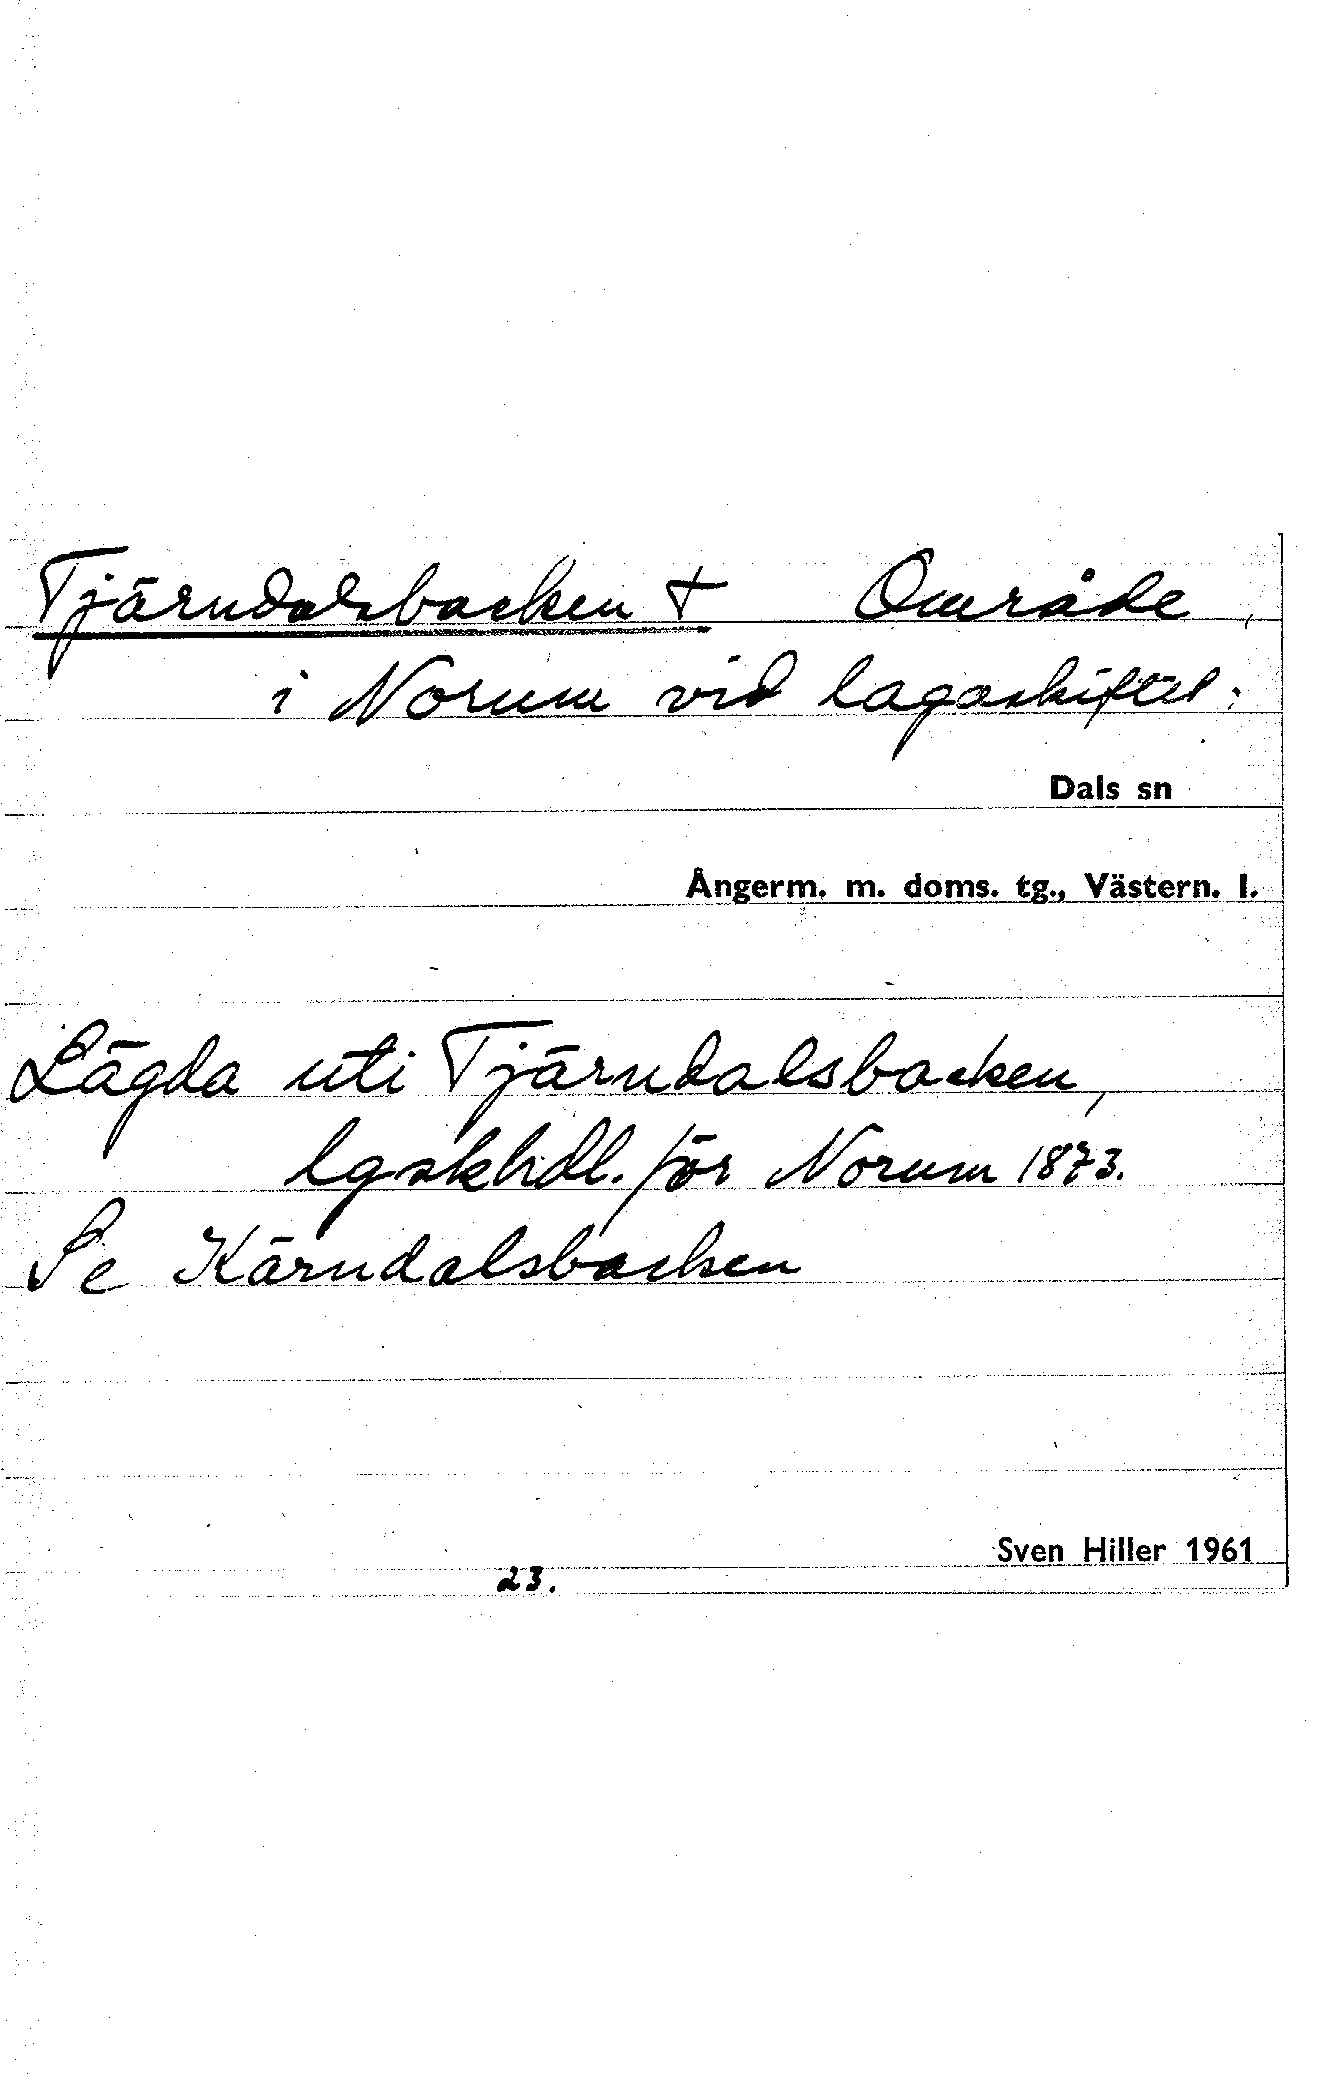 Tjärndalsbacken † Område
i Norum vid lagaskiftet.
Dals sn
Ångerm. m. doms. tg., Västern. l.
Lägda uti Tjärndalsbacken,
lgskhdl. för Norum 1873.
Se Kärndalsbacken
Sven Hiller 1961
23.